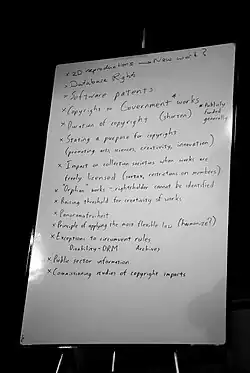 * 2D reproductions — new work?
* Database Rights
* Software patents:
* Copyright on Government* works
* Publicly
funded
generally
* Duration of copyright (shorten)
* Stating a purpose for copyright
(promoting arts, sciences, creativity, innovation)
* Impact on collection societies when works are
freely licensed (ban, restrictions on members)
* "Orphan" works - rightsholder cannot be identified
* Raising threshold for creativity of works
* Panoramafreiheit
* Principle of applying the most flexible law (harmonize?)
* Exceptions to circumvent rules
Disability - DRM Archives
* Public sector information
* Commissioning studies of copyright impacts